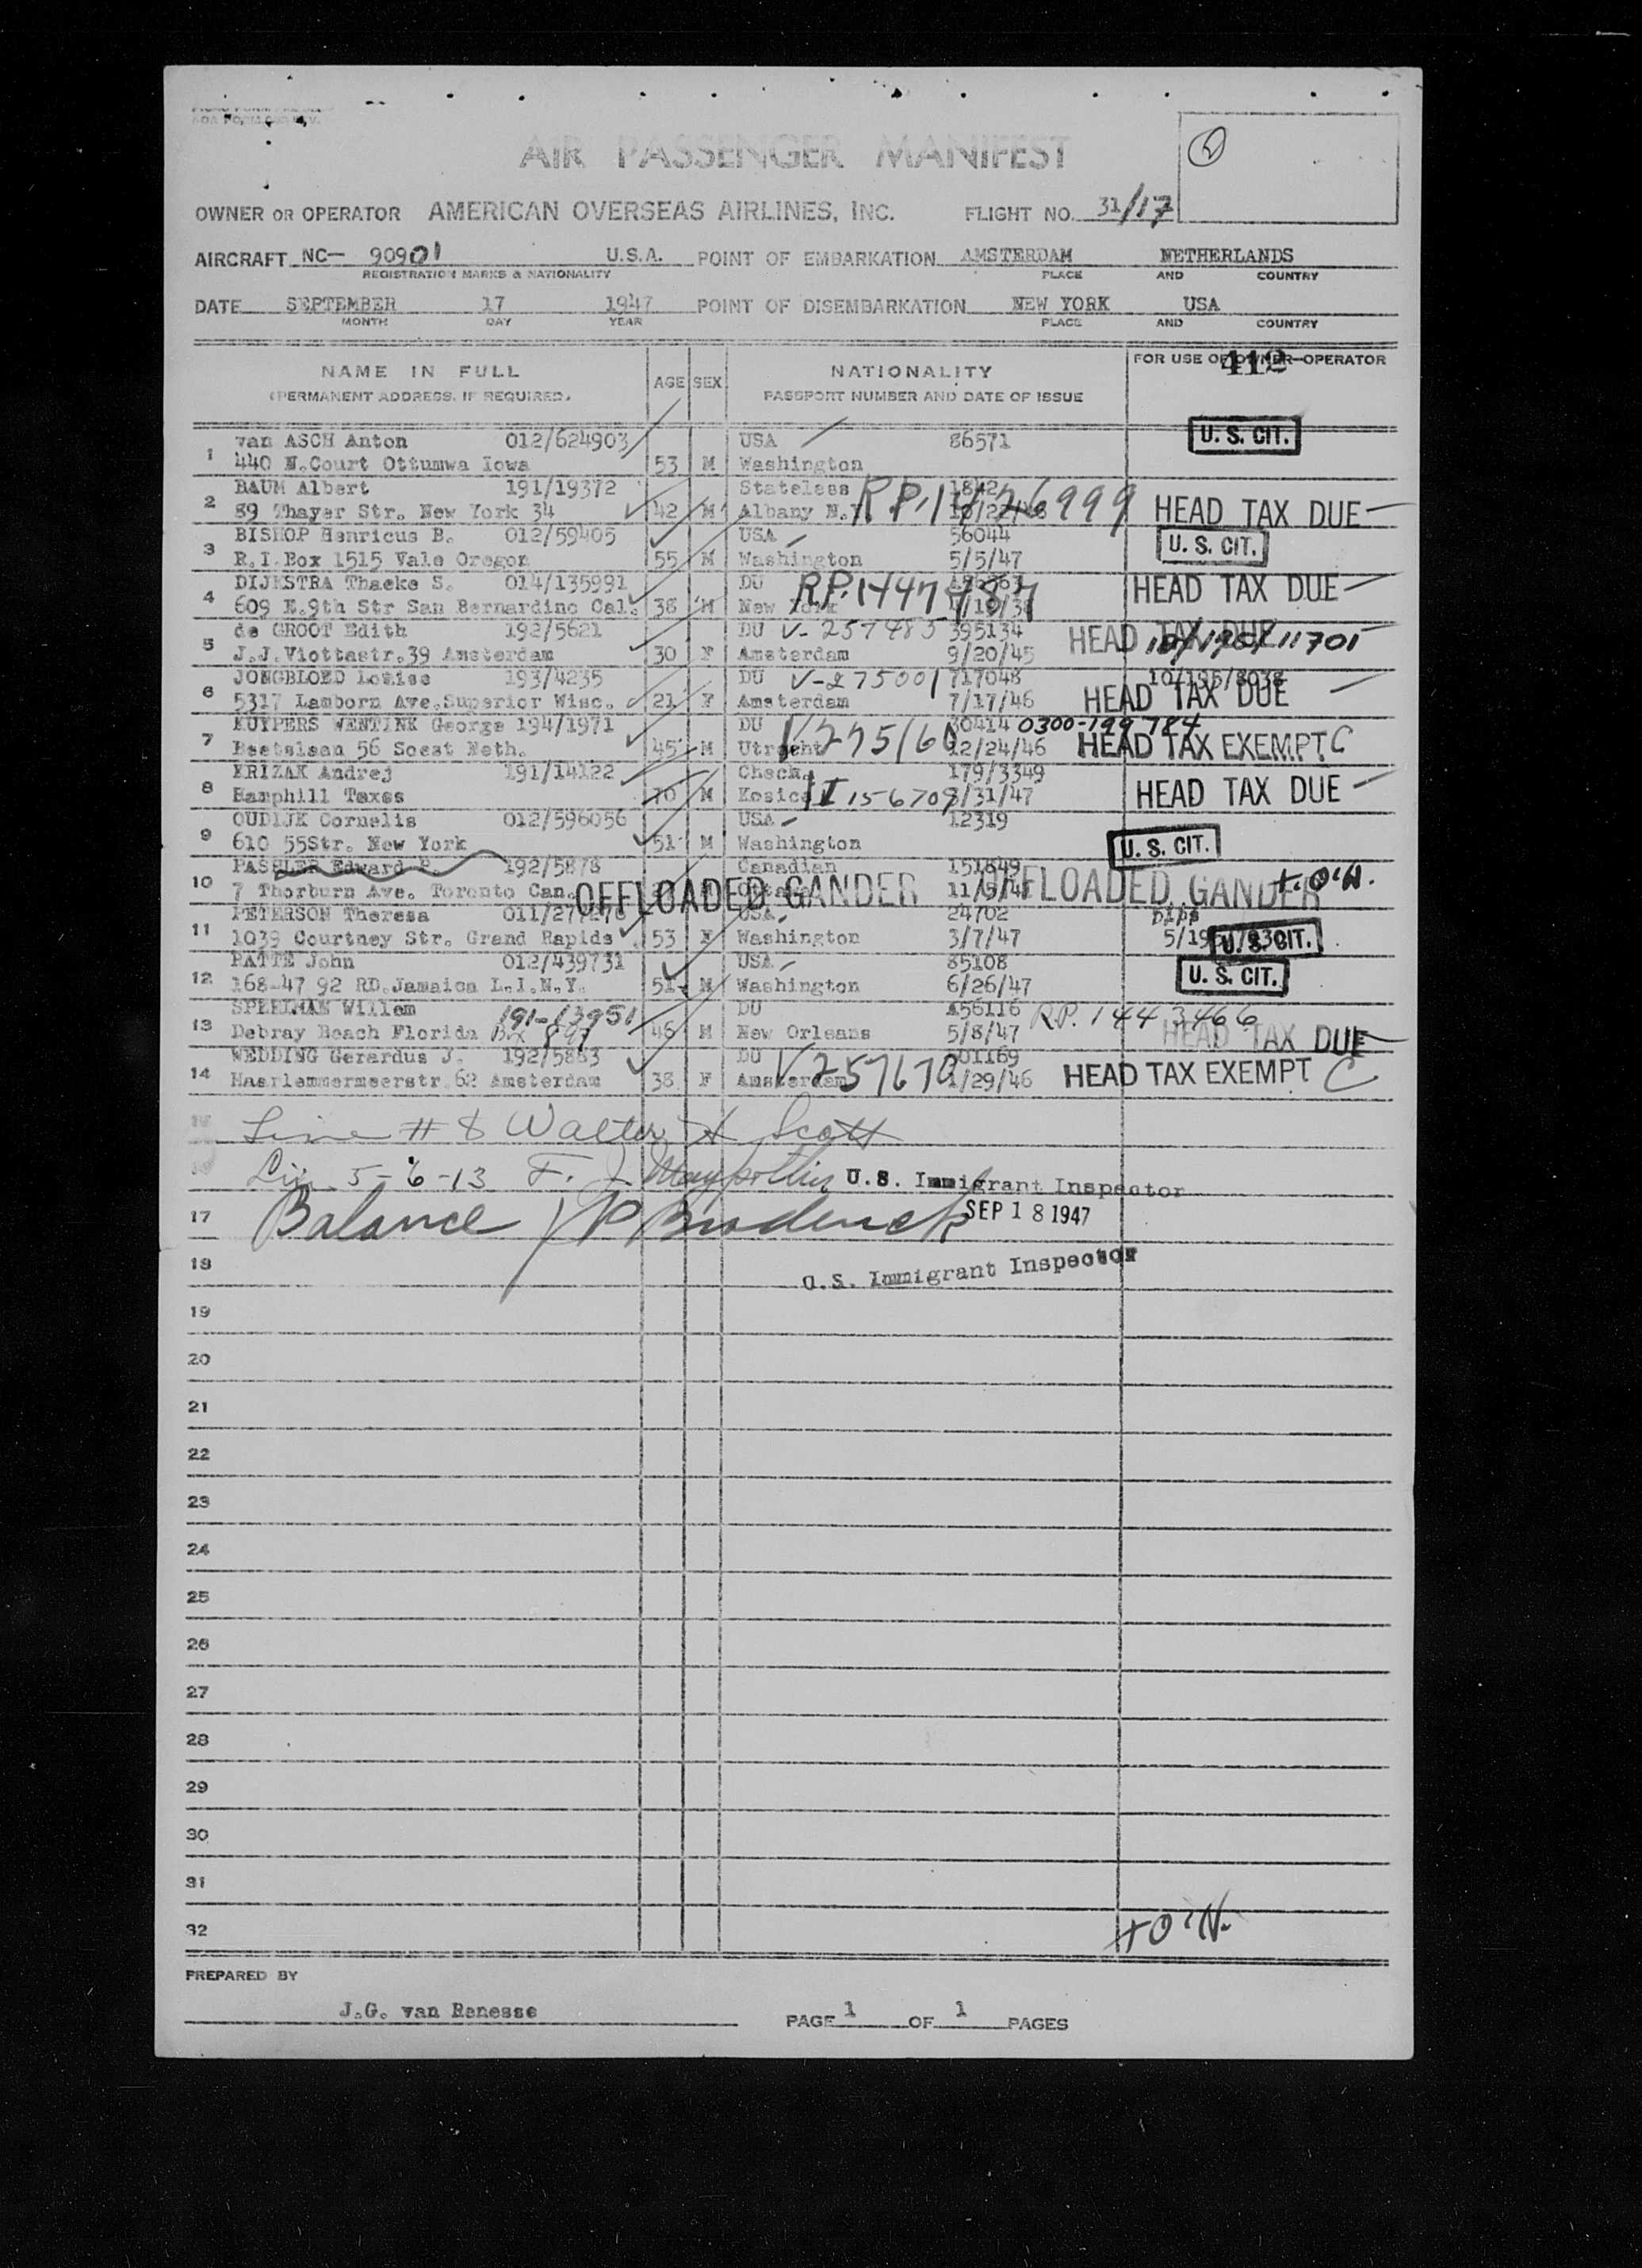 AIR PASSENGER MANIFEST
OWNER OR OPERATOR AMERICAN OVERSEAS AIRLINES, INC. FLIGHT NO. 31/17
AIRCRAFT NC- 90901 U.S.A. POINT OF EMBARKATION AMSTERDAM NETHERLANDS
REGISTRATION MARKS & NATIONALITY PLACE AND COUNTRY
DATE SEPTEMBER 17 1947 POINT OF DISEMBARKATION NEW YORK USA
MONTH DAY YEAR PLACE AND COUNTRY
NAME IN FULL AGE SEX NATIONALITY FOR USE OF OWNER-OPERATOR 412
(PERMANENT ADDRESS, IF REQUIRED) PASSPORT NUMBER AND DATE OF ISSUE
1 van ASCH Anton 012/624903 USA 86571 U. S. CIT.
440 N.Court Ottumwa Iowa 53 M Washington
2 BAUM Albert 191/19372 Stateless
89 Thayer Str. New York 34 42 M Albany N.Y. HEAD TAX DUE
3 BISHOP Henricus B. 012/59405 USA 56044 U. S. CIT.
R.I.Box 1515 Vale Oregon 55 M Washington 5/5/47
4 DIJKSTRA Thaeke S. 014/135991 DU HEAD TAX DUE
609 E.9th Str San Bernardino Cal. 38 M New York
5 de GROOT Edith 192/5621 DU V-257485 395134 HEAD TAX DUE
J.J.Viottastr.39 Amsterdam 30 F Amsterdam 9/20/45
6 JONGBLOED Louise 193/4235 DU V-275001 717048 10/195/8038
5317 Lamborn Ave.Superior Wisc. 21 F Amsterdam 7/17/46 HEAD TAX DUE
7 KUYPERS WENTINK George 194/1971 DU V275160 30414 0300-199784
Beetslaan 56 Soest Neth. 45 M Utrecht 12/24/46 HEAD TAX EXEMPT C
8 KRIZAK Andrej 191/14122 Chech. 179/3349
Hamphill Texas 70 M Kosice 156709 3/31/47 HEAD TAX DUE
9 OUDIJK Cornelis 012/596056 USA 12319 U. S. CIT.
610 55Str. New York 51 M Washington
10 PASSLER Edward P. 192/5878 Canadian 151849
7 Thorburn Ave. Toronto Can. OFFLOADED GANDER OFFLOADED GANDER
11 PETERSON Theresa USA 24702
1039 Courtney Str. Grand Rapids 53 F Washington 3/7/47 U. S. CIT.
12 PATTE John 012/439731 USA 85108 U. S. CIT.
168-47 92 RD.Jamaica L.I.N.Y. 51 M Washington 6/26/47
13 SPEELMAN Willem 191-13951 DU A56116 RP. 1443466
Debray Beach Florida Bx 897 46 M New Orleans 5/8/47 HEAD TAX DUE
14 WEDDING Gerardus J. 192/5883 DU V257670
Haarlemmermeerstr.62 Amsterdam 38 F Amsterdam 1/29/46 HEAD TAX EXEMPT C
Line # 8 Walter H Scott
5-6-13 F. J. U.S. Immigrant Inspector
17 Balance J P Broderick SEP 18 1947
18 U.S. Immigrant Inspector
19
20
21
22
23
24
25
26
27
28
29
30
31
32
PREPARED BY
J.G. van Renesse PAGE 1 OF 1 PAGES